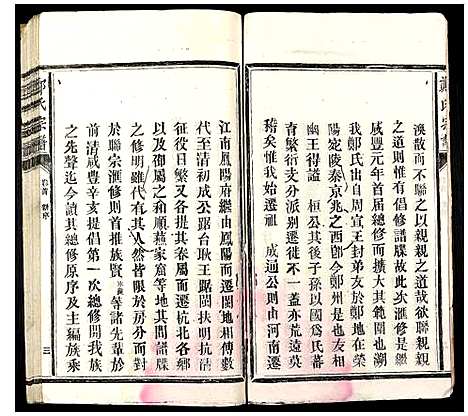 鄭氏宗譜
渙散而不聯之以親親之道哉欲聯親親
之道則惟有倡修譜牒故此次滙修是繼
咸豐元年首屆總修而擴大其範圍也溯
我鄭氏出自周宣王封弟友於鄭地今鳳
陽定陵秦京兆之西郡今鄭州是也友相
幽王得諡 桓公其後子孫以國爲氏蕃
育繁衍支分派別遷徙不一蓋亦荒遠莫
稽矣惟我始遷祖 成通公則由河南遷
江南鳳陽府繼由鳳陽而遷閩地相傳數
代至清初成公踞台耿王踞閩扶明抗清
征役日繁又各提其眷屬而遷杭北各縣
以及御屬之和順燕家窟等地其間譜牒
之修明雖代有其人然皆限於房分而巳
於聯宗滙修則首推族賢 等諸先輩於
前清咸豐辛亥提倡第一次總修開我族
之先聲迄今讀其總修原序及主編族乘
鄭氏宗譜
卷首 新序
三